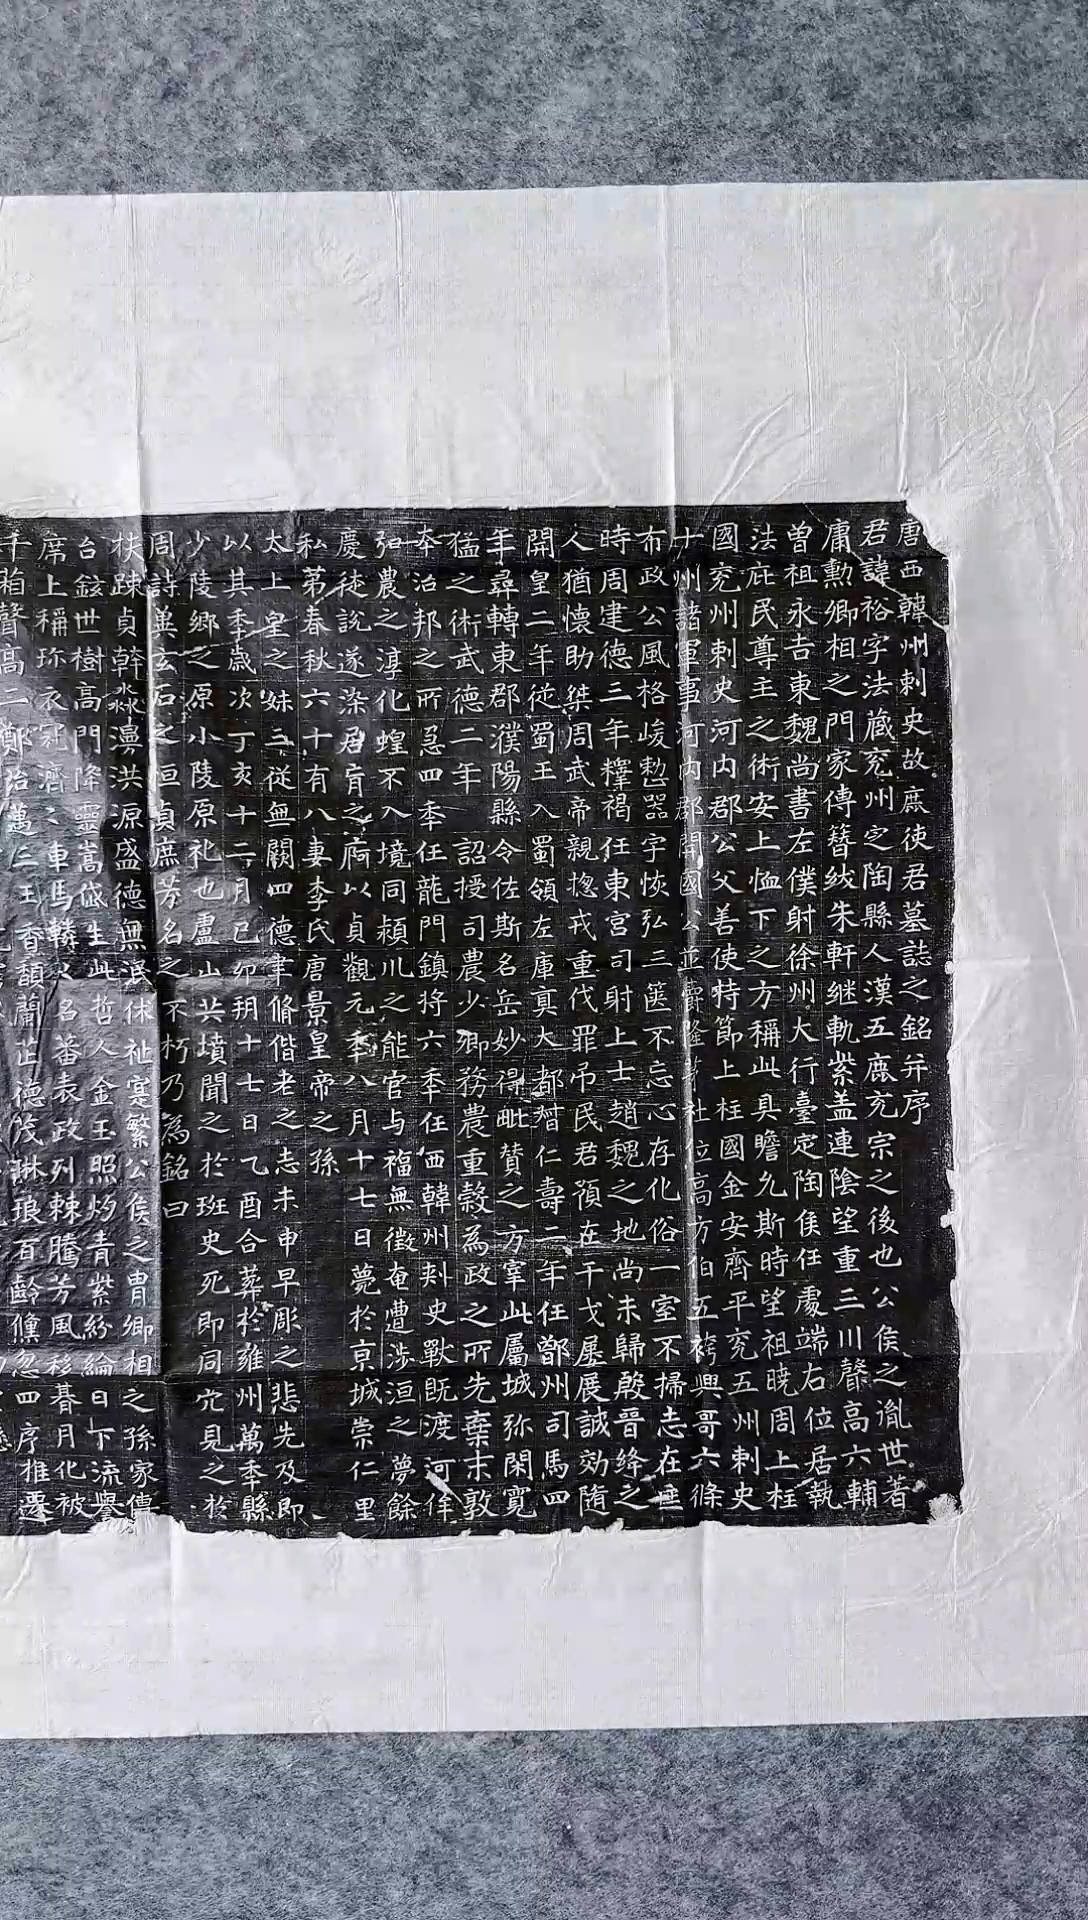 唐西韓州刺史故庶使君墓誌之銘并序
君諱裕字法藏兖州定陶縣人漢五鹿充宗之後也公侯之胤世著
庸勲卿相之門家傳簪紱朱軒継軌紫盖連陰望重三川聲高六輔
曾祖永吉東魏尚書左僕射徐州大行臺定陶侯任處端右位居執
法庇民尊主之術安上恤下之方稱此具瞻允斯時望祖曉周上柱
國兖州刺史河内郡公父善使持節上柱國金安齊平兖五州刺史
十州諸軍事河内郡開國公並爵隆社位高方伯五袴興哥六條
布政公風格峻懃器宇恢弘三篋不忘心存化俗一室不掃志在
時周建德三年釋褐任東宮司射上士趙魏之地尚未歸殷晉絳之
人猶懷助桀周武帝親揔戎重伐罪吊民君預在干戈屡展誠効隋
開皇二年従蜀王入蜀領左庫真大都督仁壽二年任鄭州司馬四
年尋轉東郡濮陽縣令佐斯名岳妙得毗贊之方宰此屬城弥閑寛
猛之術武德二年詔授司農少卿務農重穀為政之所先棄末敦
夲治邦之所急四秊任龍門鎮将六秊任西韓州刺史獸既渡河侔
弘農之淳化蝗不入境同潁川之能官与福無徴奄遭涉洹之夢餘
慶徒說遂染居肓之痾以貞觀元秊八月十七日薨於京城崇仁里
私第春秋六十有八妻李氏唐景皇帝之孫
太上皇之妹三従無闕四德聿脩偕老之志未申早彫之悲先及即
以其秊歳次丁亥十二月已卯朔十七日乙酉合葬於雍州萬秊縣
少陵郷之原小陵原礼也盧山共墳聞之於班史死即同穴見之於
周詩異玄石之恒貞庶芳名之不朽乃為銘曰
扶疎貞幹淼瀴洪源盛德無泯休祉寔繁公侯之胄卿相之孫家傳
台鉉世樹高門降靈嵩岱生此哲人金玉照灼青紫紛綸日下流譽
席上稱珎衣冠濟〻車馬轔〻名蕃表政列棘騰芳風移朞月化被
千箱聲高二鄭治邁三王香馥蘭芷德茂琳琅百齡儵忽四序推遷